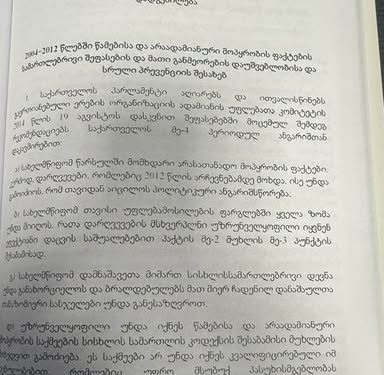 დადგენილება
2004-2012 წლებში წამებისა და არაადამიანური მოპყრობის ფაქტების
სამართლებრივი შეფასების და მათი განმეორების დაუშვებლობისა და
სრული პრევენციის შესახებ
1. საქართველოს პარლამენტი აღიარებს და ითვალისწინებს
გაერთიანებული ერების ორგანიზაციის ადამიანის უფლებათა კომიტეტის
2014 წლის 19 აგვისტოს დასკვნით შეფასებებში მოცემულ შემდეგ
რეკომენდაციებს საქართველოს მე-4 პერიოდულ ანგარიშთან
დაკავშირებით:
ა) სახელმწიფომ წარსულში მომხდარი არასათანადო მოპყრობის ფაქტები,
კერძოდ, დარღვევები, რომლებიც 2012 წლის არჩევნებამდე მოხდა, ისე უნდა
გამოიძიოს, რომ თავიდან აიცილოს პოლიტიკური ანგარიშსწორება.
ბ) სახელმწიფომ თავისი უფლებამოსილების ფარგლებში ყველა ზომა
უნდა მიიღოს, რათა დარღვევების მსხვერპლნი უზრუნველყოფილი იყვნენ
ეფექტიანი დაცვის საშუალებებით პაქტის მე-2 მუხლის მე-3 პუნქტის
შესაბამისად.
გ) სახელმწიფომ დამნაშავეთა მიმართ სისხლისსამართლებრივი დევნა
უნდა განახორციელოს და ბრალდებულებს მათ მიერ ჩადენილ დანაშაულთა
თანაზომიერი სასჯელები უნდა განესაზღვროთ.
დ) უზრუნველყოფილი უნდა იქნეს წამებისა და არაადამიანური
მოპყრობის საქმეების სისხლის სამართლის კოდექსის შესაბამისი მუხლების
მიხედვით გამოძიება. ეს საქმეები არ უნდა იქნეს კვალიფიცირებული იმ
რომლებიც უფრო მსუბუქ პასუხისმგებლობას